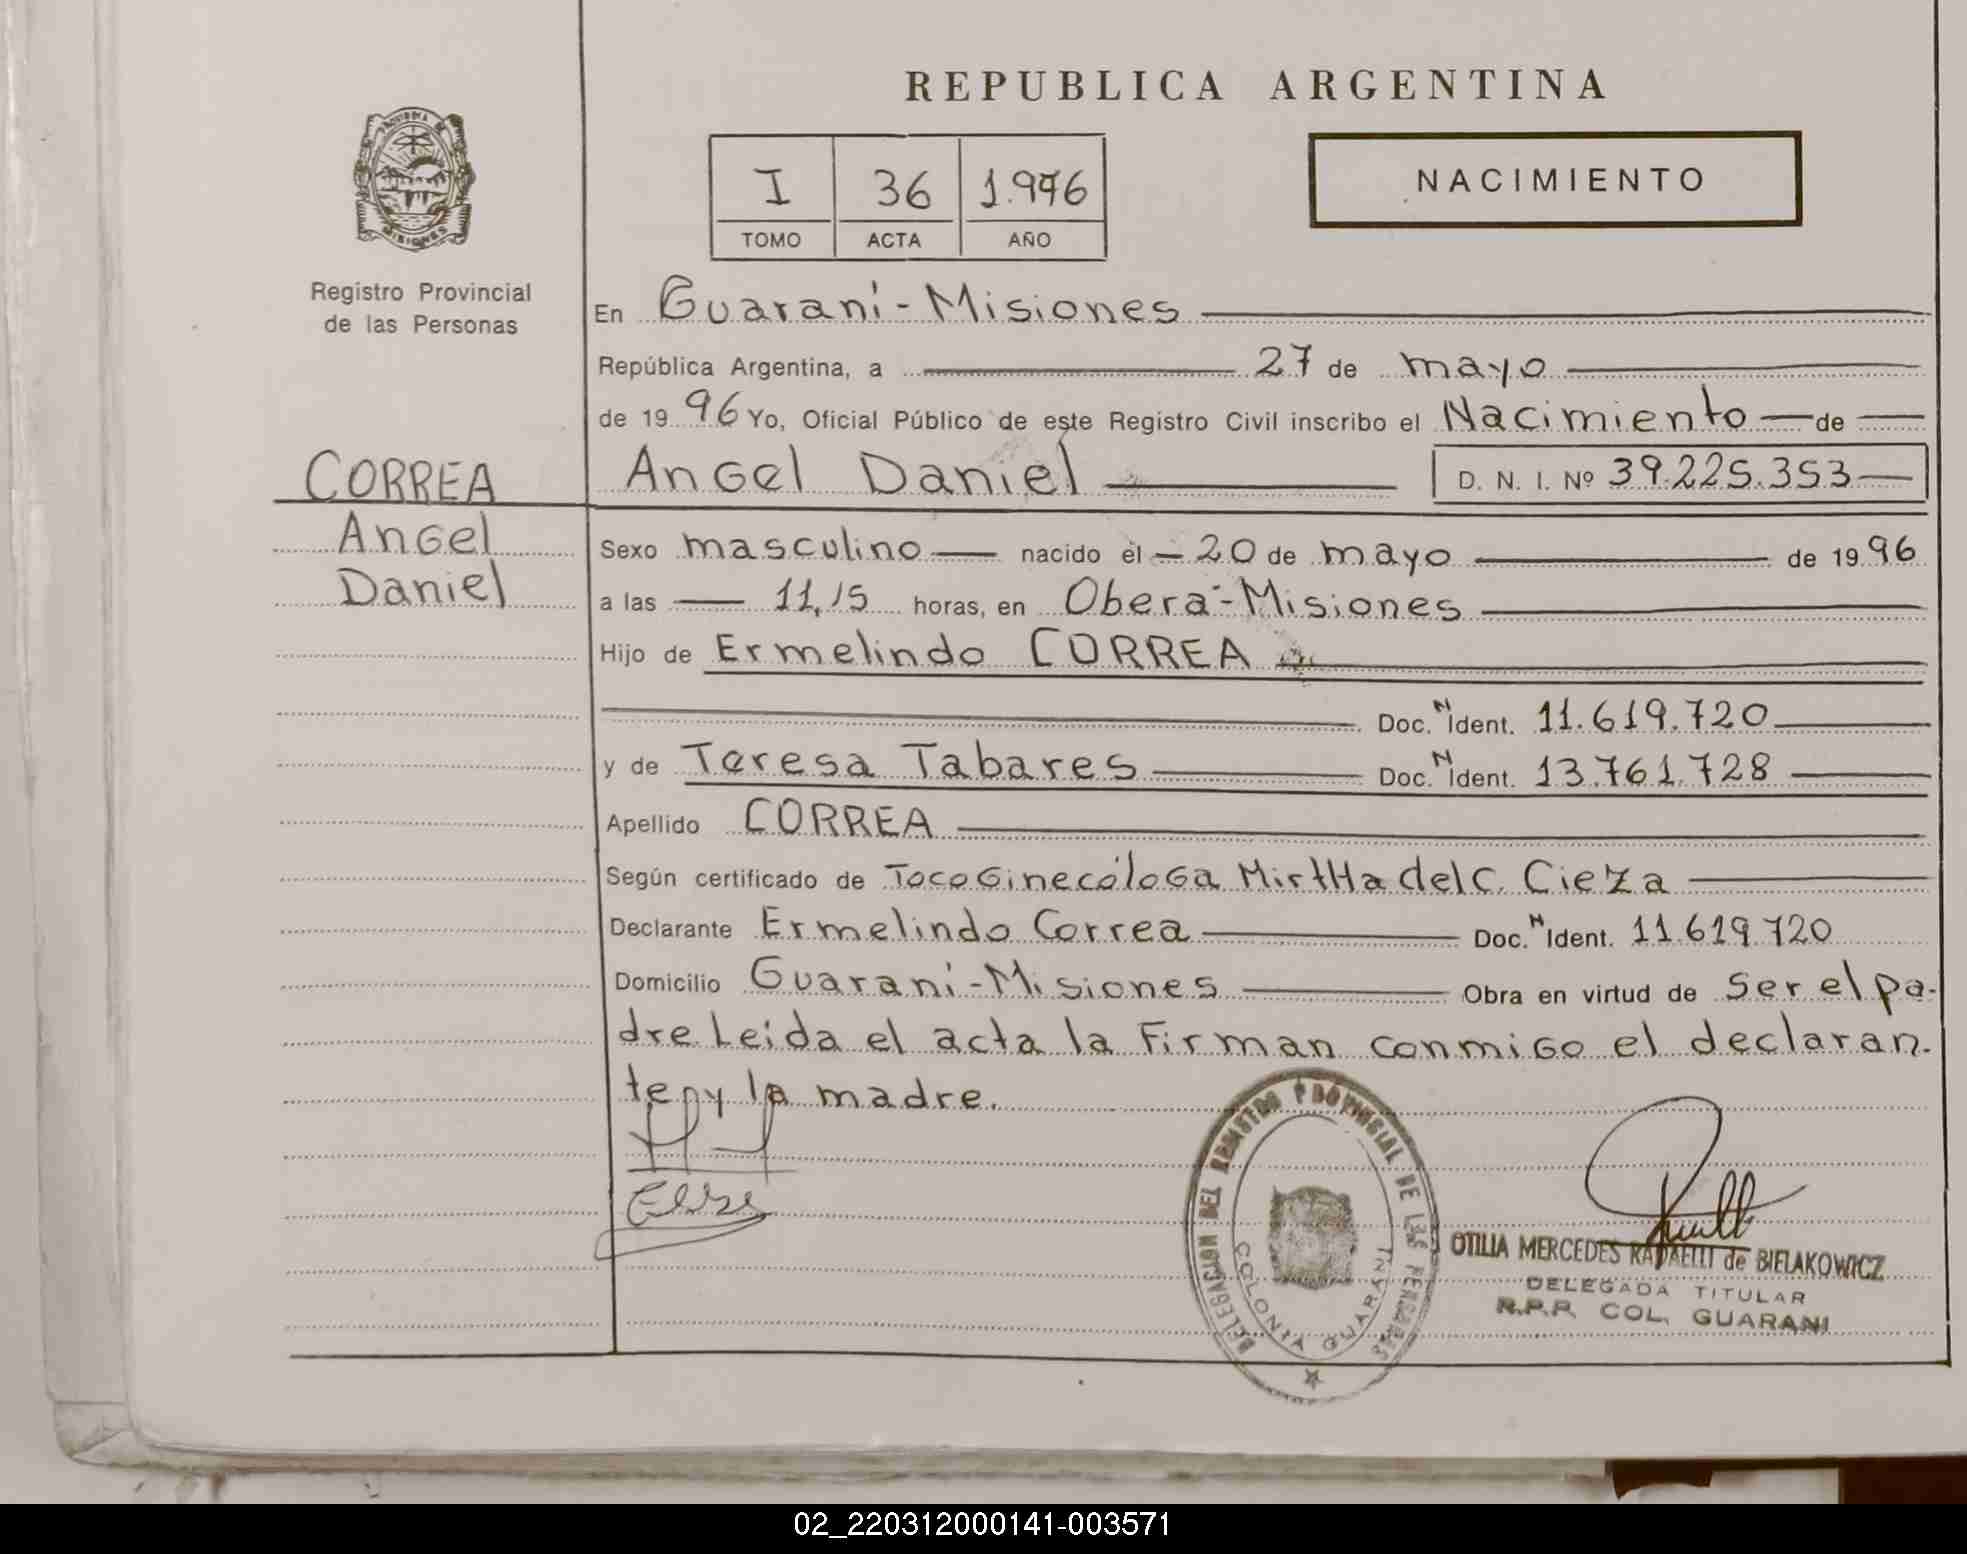 REPUBLICA ARGENTINA
PROVINCIA DE
MISIONES
Registro Provincial
de las Personas
I 36 1.996
TOMO ACTA AÑO
NACIMIENTO
En Guaraní-Misiones
República Argentina, a 27 de mayo
de 19 96 Yo, Oficial Público de este Registro Civil inscribo el Nacimiento de
CORREA
Angel
Daniel
Angel Daniel D. N. I. Nº 39.225.353
Sexo masculino nacido el 20 de mayo de 19 96
a las 11,15 horas, en Oberá-Misiones
Hijo de Ermelindo CORREA
Doc. N Ident. 11.619.720
y de Teresa Tabares Doc. N Ident. 13.761.728
Apellido CORREA
Según certificado de Tocoginecóloga Mirtha del C. Cieza
Declarante Ermelindo Correa Doc. N Ident. 11.619.720
Domicilio Guaraní-Misiones Obra en virtud de ser el pa-
dre. Leida el acta la firman conmigo el declaran-
te y la madre.
DELEGACION DEL REGISTRO PROVINCIAL DE LAS PERSONAS
COLONIA GUARANI
OTILIA MERCEDES RAPAELLI de BIELAKOWICZ
DELEGADA TITULAR
R.P.P. COL. GUARANI
02_220312000141-003571